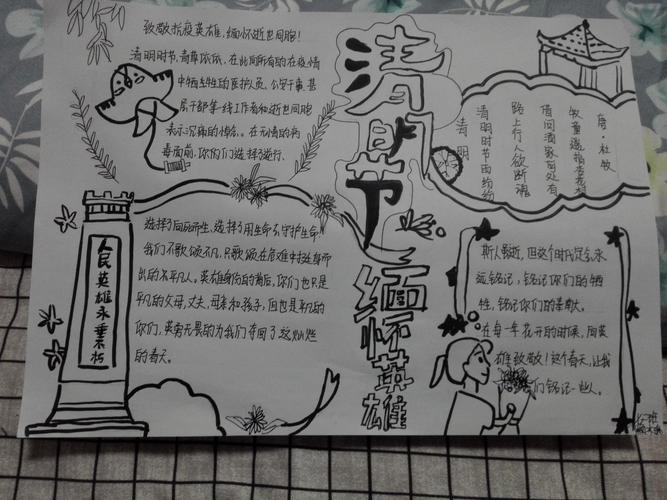 致敬抗疫英雄，缅怀逝世同胞！
清明时节，清草依依，在此向所有的在疫情
中牺牲的医护人员、公安干事、基
层干部等一线工作者和逝世同胞
表示沉痛的悼念。在无情的病
毒面前，你们选择了逆行，
选择了向死而生，选择了用生命去守护生命！
我们不歌颂不凡，只歌颂在危难中挺身而
出的不平凡人。英雄身伤的背后，你们也只是
平凡的父母、丈夫、母亲和孩子，但也是平凡的
你们，英勇无畏的为我们夺回了这灿烂
的春天。
人民英雄永垂不朽
清明节
缅怀英雄
唐·杜牧
清明
清明时节雨纷纷
路上行人欲断魂
借问酒家何处有
牧童遥指杏花村
斯人影近，但这个时代定会永
远铭记，铭记你们的牺
牲，铭记你们的奉献。
在每一年花开的时候，向英
雄致敬！这个春天，让我
们铭记一些人。